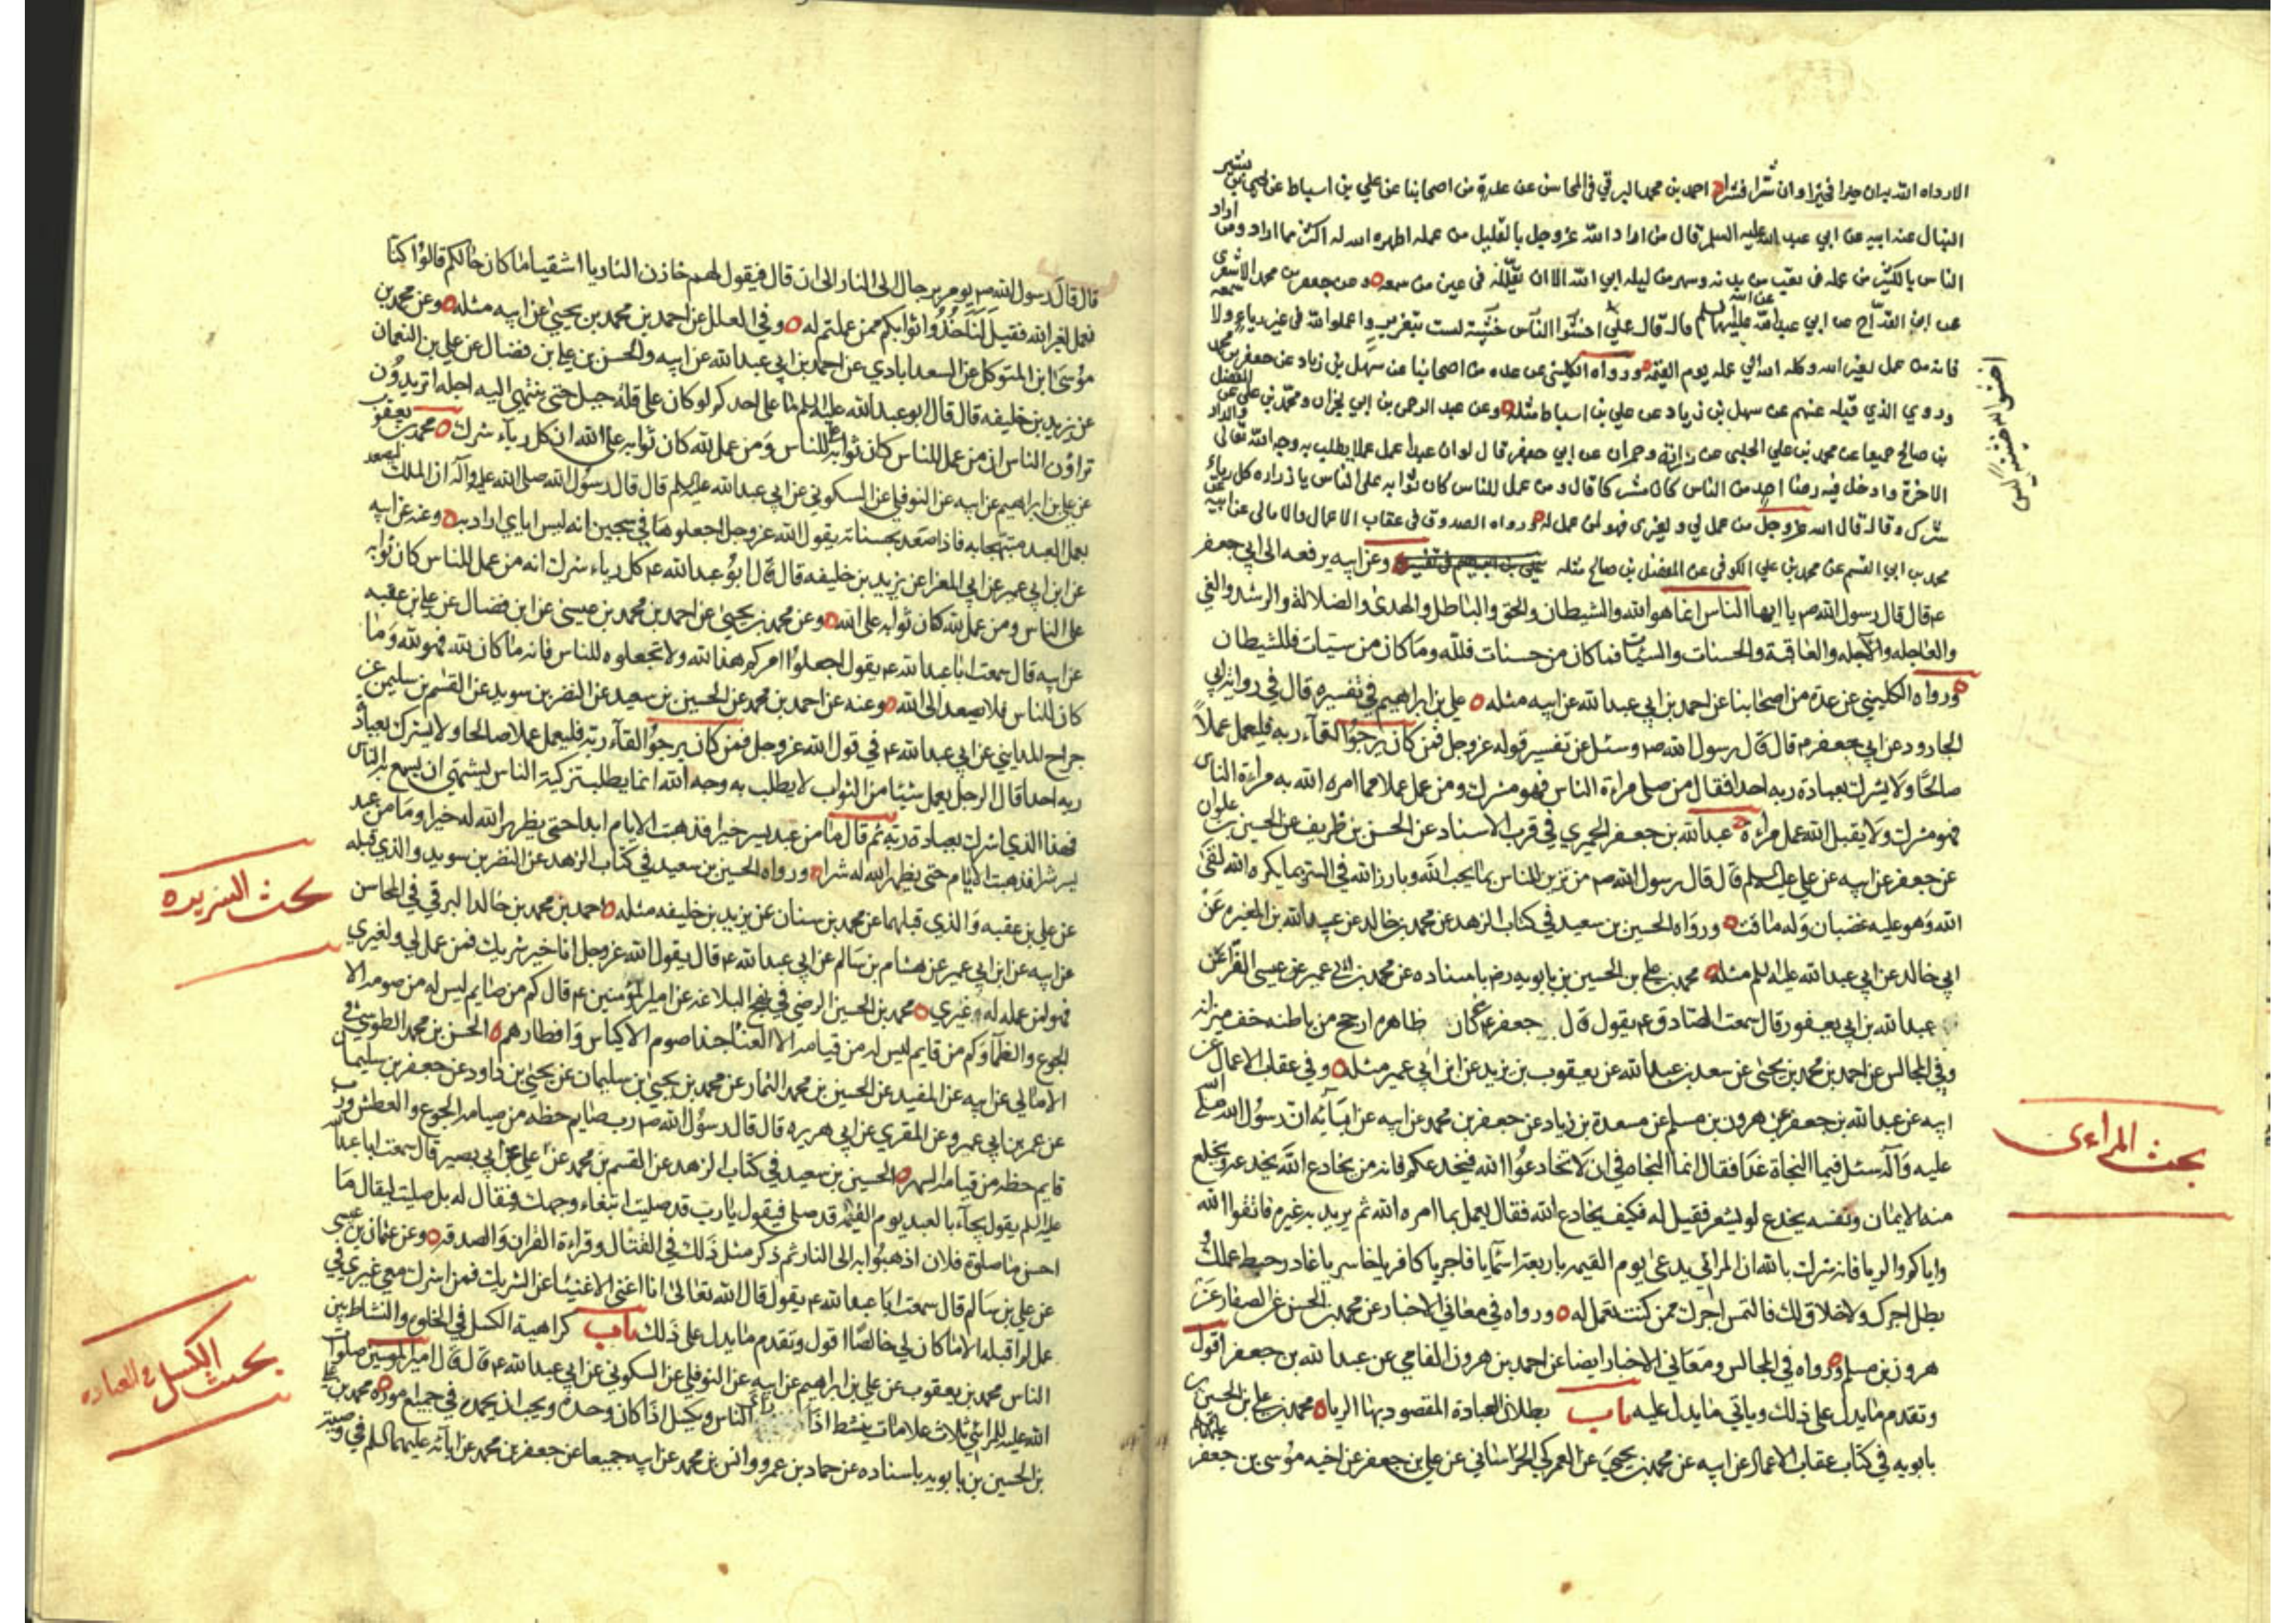 الارداه الله بدان خيرا فخيرا وان شرا فشرا احمد بن محمد البرقي في المحاسن عن عدة من اصحابنا عن علي بن اسباط عن يحيى بن بشير
النبال عن ابيه عن ابي عبد الله عليه السلم قال من اراد الله عز وجل بالقليل من عمله اظهره الله له اكثر مما اراد ومن اراد
الناس بالكثير من عمله في تعب من بدنه وسهر من ليله ابى الله الا ان يقلله في عين من سمعه وعن جعفر بن محمد الاشعري
عن ابن القداح عن ابي عبد الله عليه السلم قال قال علي اخشوا الله خشية ليست بتعذير واعملوا لله في غير رياء ولا سمعة
فانه من عمل لغير الله وكله الله الى عمله يوم القيمة ورواه الكليني عن عده من اصحابنا عن سهل بن زياد عن جعفر بن محمد
وروي الذي قبله عنهم عن سهل بن زياد عن علي بن اسباط مثله وعن عبد الرحمن بن ابي نجران ومحمد بن علي عن المفضل
بن صالح جميعا عن محمد بن علي الحلبي عن زرارة وحمران عن ابي جعفر قال لو ان عبدا عمل عملا يطلب به وجه الله تعالى والدار
الاخرة وادخل فيه رضا احد من الناس كان مشركا قال ومن عمل للناس كان ثوابه على الناس يا زراره كل رياء
شرك وقال قال الله عز وجل من عمل لي ولغيري فهو لمن عمل له ورواه الصدوق في عقاب الاعمال والامالي عن ابيه عن
محمد بن ابي القسم عن محمد بن علي الكوفي عن المفضل بن صالح مثله علي بن ابراهيم في تفسيره وعن ابيه يرفعه الى ابي جعفر
ع قال قال رسول الله ص يا ايها الناس انما هو الله والشيطان والحق والباطل والهدى والضلالة والرشد والغي
والعاجله والآجله والعاقبة والحسنات والسيئات فما كان من حسنات فلله وما كان من سيئات فللشيطان
ورواه الكليني عن عدة من اصحابنا عن احمد بن ابي عبد الله عن ابيه مثله علي بن ابراهيم في تفسيره قال في رواية ابي
الجارود عن ابي جعفر ع قال قال رسول الله ص وسئل عن تفسير قوله عز وجل فمن كان يرجوا لقآء ربه فليعمل عملاً
صالحًا ولا يشرك بعبادة ربه احدا فقال من صلى مراءة الناس فهو مشرك ومن عمل عملا مما امره الله به مراءة الناس
فهو مشرك ولا يقبل الله عمل مراءٍ عبد الله بن جعفر الحميري في قرب الاسناد عن الحسن بن ظريف عن الحسين بن علوان
عن جعفر عن ابيه عن علي عليه السلم قال قال رسول الله ص من تزين للناس بما يحب الله وبارز الله في السر بما يكره الله لقي
الله وهو عليه غضبان وله ماقت ورواه الحسين بن سعيد في كتاب الزهد عن محمد بن خالد عن عبد الله بن المغيره عن
ابي خالد عن ابي عبد الله عليه السلم مثله محمد بن علي بن الحسين بن بابويه رض باسناده عن محمد بن ابي عمير عن عيسى الفرا عن
عبد الله بن ابي يعفور قال سمعت الصادق ع يقول قال جعفر ع من كان ظاهره ارجح من باطنه خف ميزانه
وفي المجالس عن احمد بن محمد بن يحيى عن سعد بن عبد الله عن يعقوب بن يزيد عن ابن ابي عمير مثله وفي عقاب الاعمال عن
ابيه عن عبد الله بن جعفر عن هرون بن مسلم عن مسعدة بن زياد عن جعفر بن محمد عن ابيه عن ابائه ان رسول الله صلى الله
عليه وآله سئل فيما النجاة غدا فقال انما النجاة في ان لا تخادعوا الله فيخدعكم فانه من يخادع الله يخدعه ويخلع
منه الايمان ونفسه يخدع لو يشعر فقيل له فكيف يخادع الله فقال يعمل بما امره الله ثم يريد به غيره فاتقوا الله
واياكم والريا فانه شرك بالله ان المرائي يدعى يوم القيمه باربعة اسمآء يا فاجر يا كافر يا خاسر يا غادر حبط عملك و
بطل اجرك ولا خلاق لك فالتمس اجرك ممن كنت تعمل له ورواه في معاني الاخبار عن محمد بن الحسن عن الصفار عن
هرون بن مسلم ورواه في المجالس ومعاني الاخبار ايضا عن احمد بن هرون الفامي عن عبد الله بن جعفر اقول
وتقدم ما يدل على ذلك وياتي ما يدل عليه باب بطلان العبادة المقصود بها الريا محمد بن علي بن الحسين بن
بابويه في كتاب عقاب الاعمال عن ابيه عن محمد بن يحيى عن العمركي الخراساني عن علي بن جعفر عن اخيه موسى بن جعفر عليهما السلم
اخشوا الله خشية ليس
بحث المراءى
قال قال رسول الله ص يومر برجال الى النار الى ان قال فيقول لهم خازن النار يا اشقيا ما كان حالكم قالوا كنا
نعمل لغير الله فقيل لنا خذوا ثوابكم ممن عملتم له وفي العلل عن احمد بن محمد بن يحيى عن ابيه مثله وعن محمد بن
موسى ابن المتوكل عن السعدابادي عن احمد بن ابي عبد الله عن ابيه والحسن بن علي بن فضال عن علي بن النعمان
عن يزيد بن خليفه قال قال ابو عبد الله عليه السلم ما على احدكم لو كان على قلة جبل حتى ينتهي اليه اجله اتريدون
تراؤن الناس ان من عمل للناس كان ثوابه على الناس ومن عمل لله كان ثوابه على الله ان كل رياء شرك محمد بن يعقوب
عن علي بن ابراهيم عن ابيه عن النوفلي عن السكوني عن ابي عبد الله عليه السلم قال قال رسول الله صلى الله عليه وآله ان الملك ليصعد
بعمل العبد مبتهجا به فاذا صعد بحسناته يقول الله عز وجل اجعلوها في سجين انه ليس اياي اراد به وعنه عن ابيه
عن ابن ابي عمير عن ابي المغرا عن يزيد بن خليفه قال قال ابو عبد الله ع كل رياء شرك انه من عمل للناس كان ثوابه
على الناس ومن عمل لله كان ثوابه على الله وعن محمد بن يحيى عن احمد بن محمد بن عيسى عن ابن فضال عن علي بن عقبه
عن ابيه قال سمعت ابا عبد الله ع يقول اجعلوا امركم هذا لله ولا تجعلوه للناس فانه ما كان لله فهو لله وما
كان للناس فلا يصعد الى الله وعنه عن احمد بن محمد عن الحسين بن سعيد عن النضر بن سويد عن القسم بن سليمن عن
جراح المدايني عن ابي عبد الله ع في قول الله عز وجل فمن كان يرجوا لقآء ربه فليعمل عملا صالحا ولا يشرك بعبادة
ربه احدا قال الرجل يعمل شيئا من الثواب لا يطلب به وجه الله انما يطلب تزكية الناس يشتهي ان يسمع به الناس
فهذا الذي اشرك بعبادة ربه ثم قال ما من عبد يسر خيرا فذهبت الايام ابدا حتى يظهر الله له خيرا وما من عبد
يسر شرا فذهبت الايام حتى يظهر الله له شرا ورواه الحسين بن سعيد في كتاب الزهد عن النضر بن سويد والذي قبله
عن علي بن عقبه والذي قبلهما عن محمد بن سنان عن يزيد بن خليفه مثله احمد بن محمد بن خالد البرقي في المحاسن
عن ابيه عن ابن ابي عمير عن هشام بن سالم عن ابي عبد الله ع قال يقول الله عز وجل انا خير شريك فمن عمل لي ولغيري
فهو لمن عمله له غيري محمد بن الحسين الرضي في نهج البلاغه عن امير المؤمنين ع قال كم من صايم ليس له من صومه الا
الجوع والظمآ وكم من قايم ليس له من قيامه الا العنا حبذا صوم الاكياس وافطارهم الحسن بن محمد الطوسي في
الامالي عن ابيه عن المفيد عن الحسين بن محمد التمار عن محمد بن يحيى بن سليمان عن يحيى بن داود عن جعفر بن سليمان
عن عمر بن ابي عمرو عن المقري عن ابي هريره قال قال رسول الله ص رب صايم حظه من صيامه الجوع والعطش ورب
قايم حظه من قيامه السهر الحسين بن سعيد في كتاب الزهد عن القسم بن محمد عن علي عن ابي بصير قال سمعت ابا عبد الله
عليه السلم يقول يجآء بالعبد يوم القيمة قد صلى فيقول يا رب قد صليت ابتغاء وجهك فيقال له بل صليت ليقال ما
احسن صلوة فلان اذهبوا به الى النار ثم ذكر مثل ذلك في القتال وقراءة القران والصدقه وعن عثمان بن عيسى
عن علي بن سالم قال سمعت ابا عبد الله ع يقول قال الله تعالى انا اغنى الاغنيا عن الشريك فمن اشرك معي غيري في
عمل لم اقبله الا ما كان لي خالصا اقول وتقدم ما يدل على ذلك باب كراهية الكسل في الخلوة والنشاط بين
الناس محمد بن يعقوب عن علي بن ابراهيم عن ابيه عن النوفلي عن السكوني عن ابي عبد الله ع قال قال امير المومنين صلوات
الله عليه للمرائي ثلاث علامات ينشط اذا راى الناس ويكسل اذا كان وحده ويحب ان يحمد في جميع اموره محمد بن علي
بن الحسين بن بابويه باسناده عن حماد بن عمرو وانس بن محمد عن ابيه جميعا عن جعفر بن محمد عن ابآئه عليهما السلم في وصية
بحث السريره
بحث الكسل في العباده